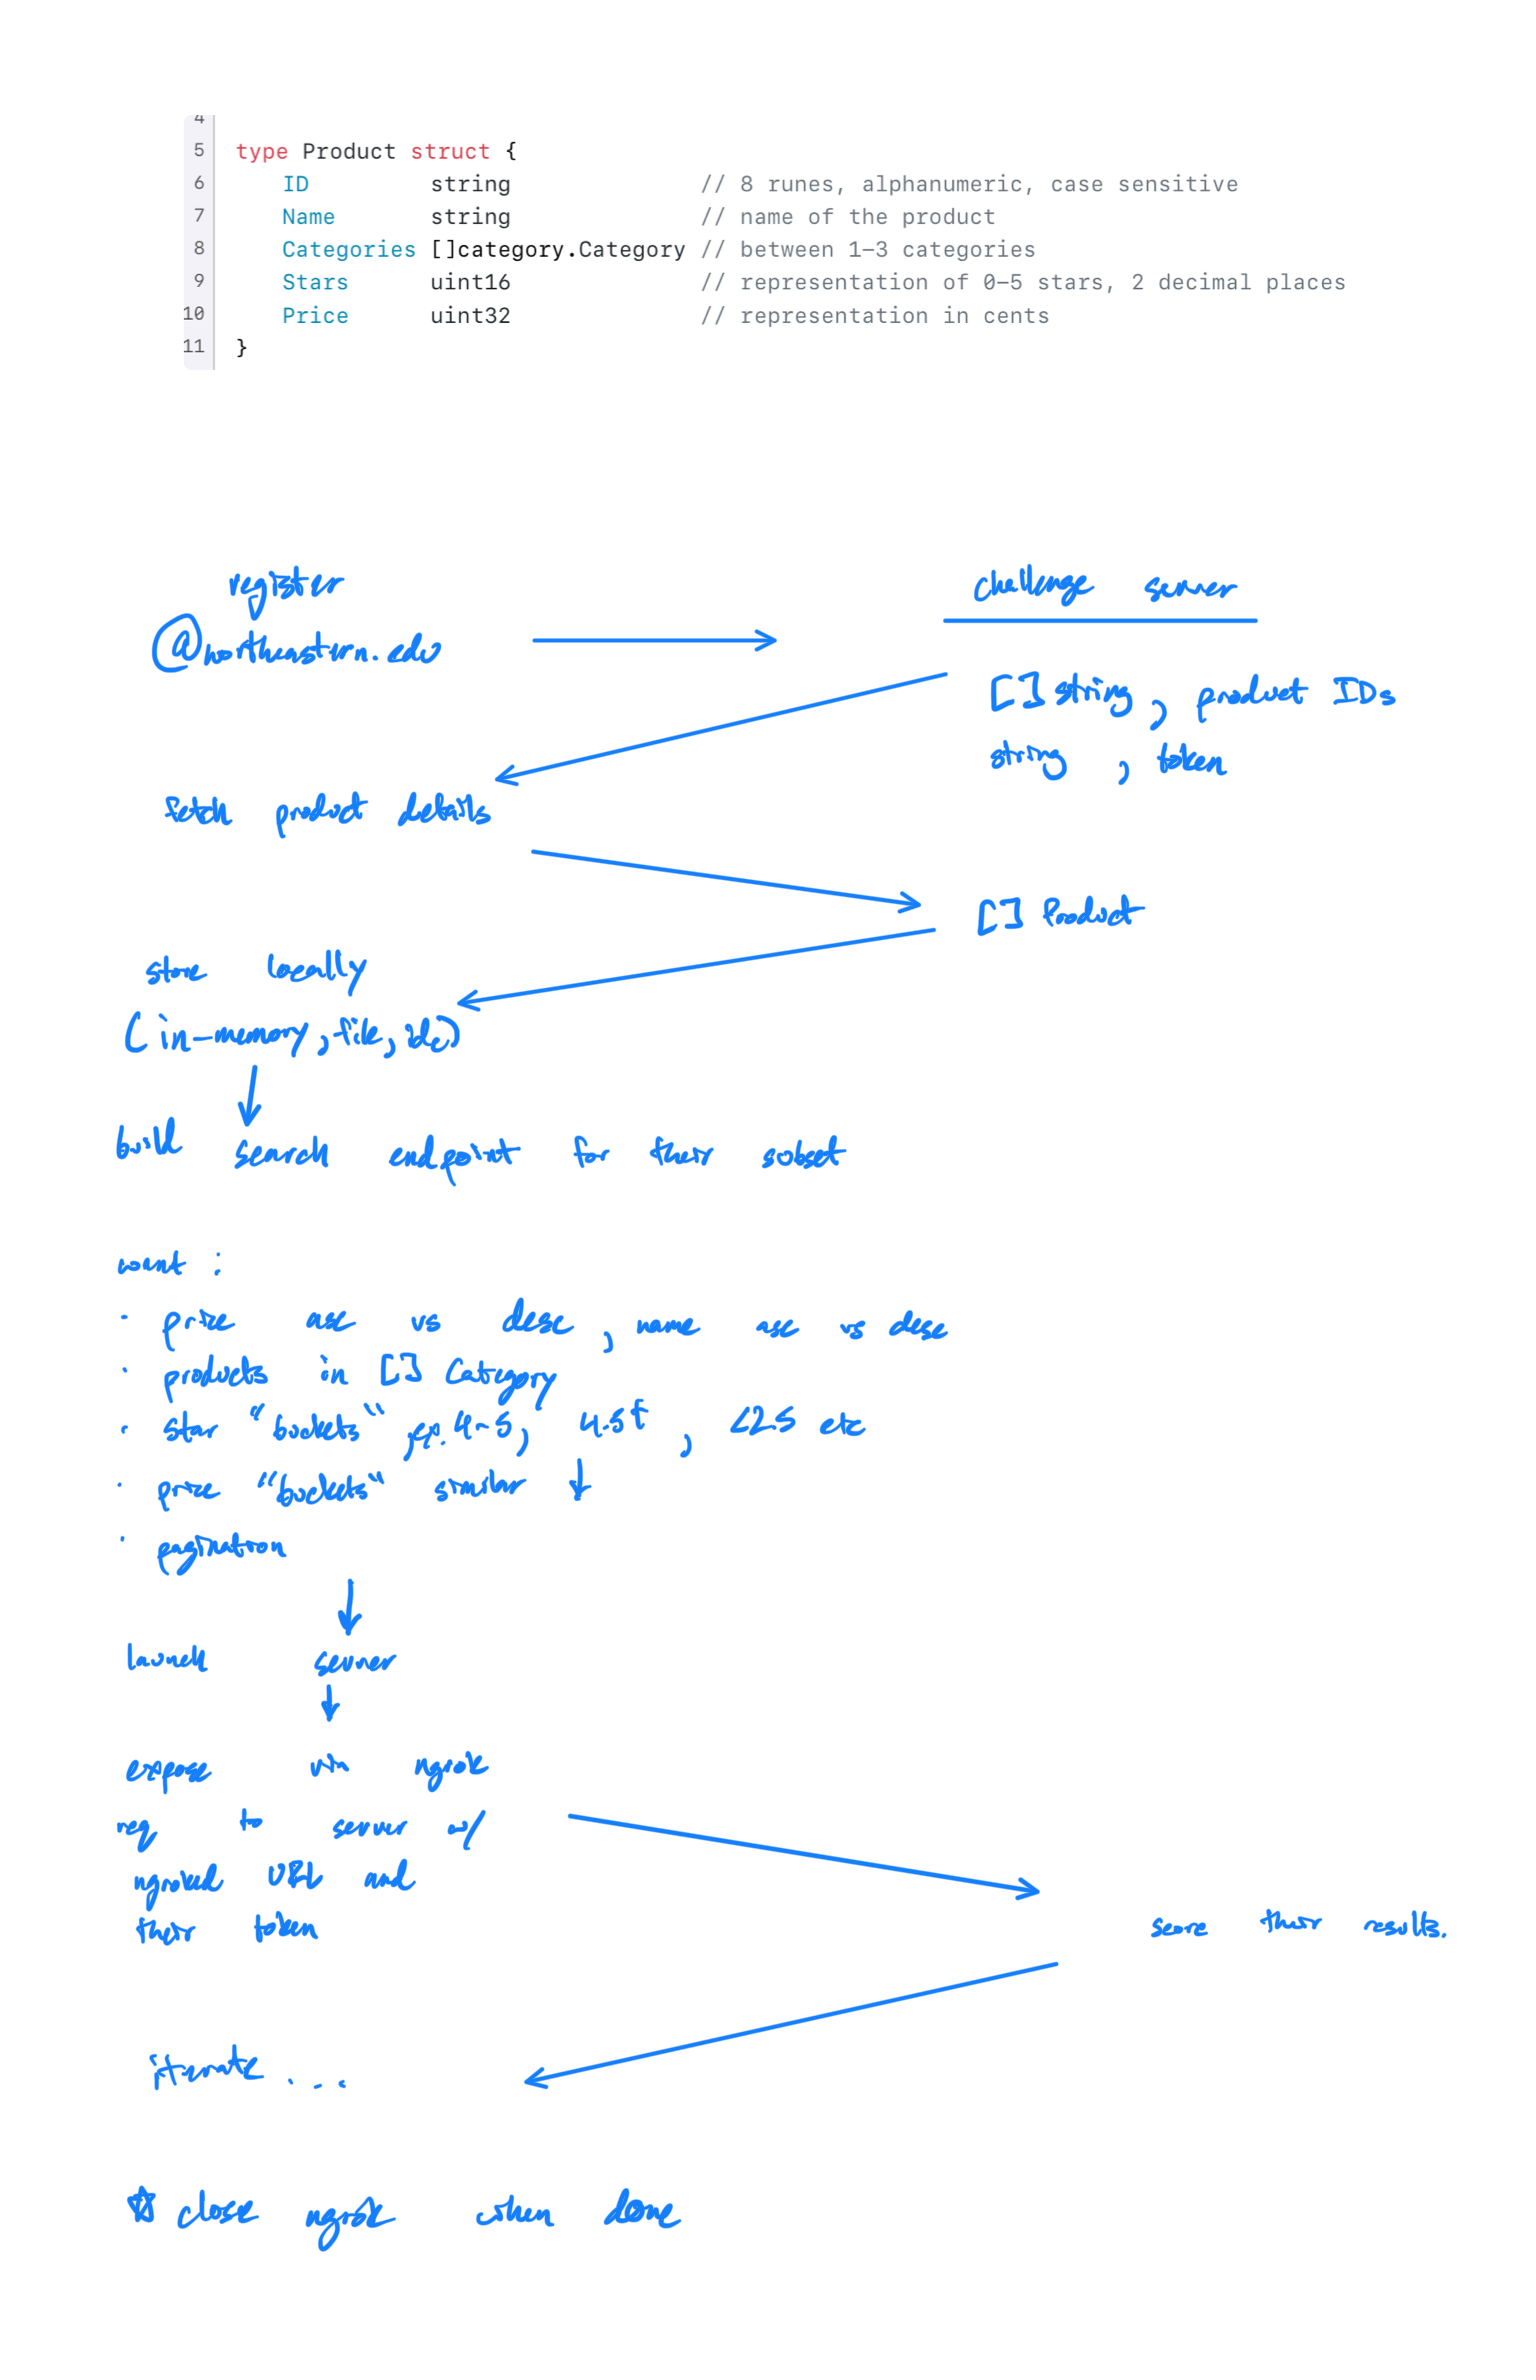 4
5 type Product struct {
6 ID string // 8 runes, alphanumeric, case sensitive
7 Name string // name of the product
8 Categories []category.Category // between 1–3 categories
9 Stars uint16 // representation of 0–5 stars, 2 decimal places
10 Price uint32 // representation in cents
11 }
register
@northeastern.edu
challenge server
[] string, product IDs
string, token
fetch product details
[] Product
store locally
(in-memory, file, idc)
build search endpoint for their subset
want :
· price asc vs desc, name asc vs desc
· products in [] Category
· star "buckets", ex. 4-5, 4.5+, <2.5 etc
· price "buckets" similar ↓
· pagination
launch server
expose via ngrok
req to server w/
ngroked URL and
their token
score their results.
iterate ...
☆ close ngrok when done